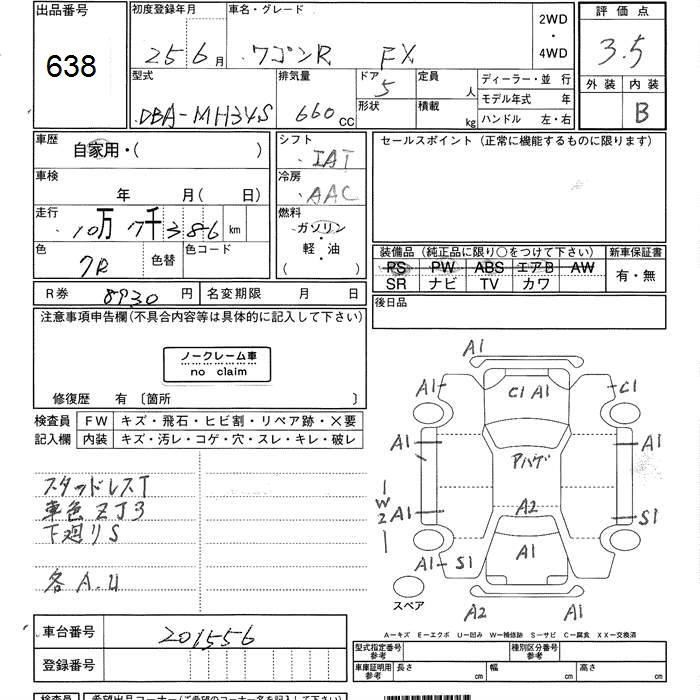 出品番号
638
初度登録年月
25 6月
車名・グレード
ワゴンR FX
2WD
・
4WD
評価点
3.5
外装 内装
B
型式
DBA-MH34S
排気量
660cc
ドア
5
形状
定員
人
積載
kg
ディーラー・並 行
モデル年式 年
ハンドル 左・右
車歴
自家用・( )
車検
年 月( 日)
走行
10万7千386km
色
クロ
色替
色コード
シフト
IAT
冷房
AAC
燃料
ガソリン
・
軽・油
( )
セールスポイント(正常に機能するものに限ります)
装備品 (純正品に限り○をつけて下さい)
PS PW ABS エアB AW
SR ナビ TV カワ
新車保証書
有・無
後日品
R券
8930円
名変期限 月 日
注意事項申告欄(不具合内容等は具体的に記入して下さい)
ノークレーム車
no claim
修復歴 有〔箇所 〕
検査員
記入欄
FW キズ・飛石・ヒビ割・リペア跡・×要
内装 キズ・汚レ・コゲ・穴・スレ・キレ・破レ
スタッドレスT
車色ZJ3
下廻りS
各A.U
A1
A1
C1 A1
C1
A1
アハゲ
A1
W2
A1
A2
S1
A1
S1
A1
スペア
A2
A1
A―キズ E―エクボ U―凹み W―補修跡 S―サビ C―腐食 XX―交換済
車台番号
201556
登録番号
型式指定番号
参考
種別区分番号
参考
車庫証明用
参考
長さ cm
幅 cm
高さ cm
検査員
希望出品コーナー(ご希望のコーナー名を記入下さい)